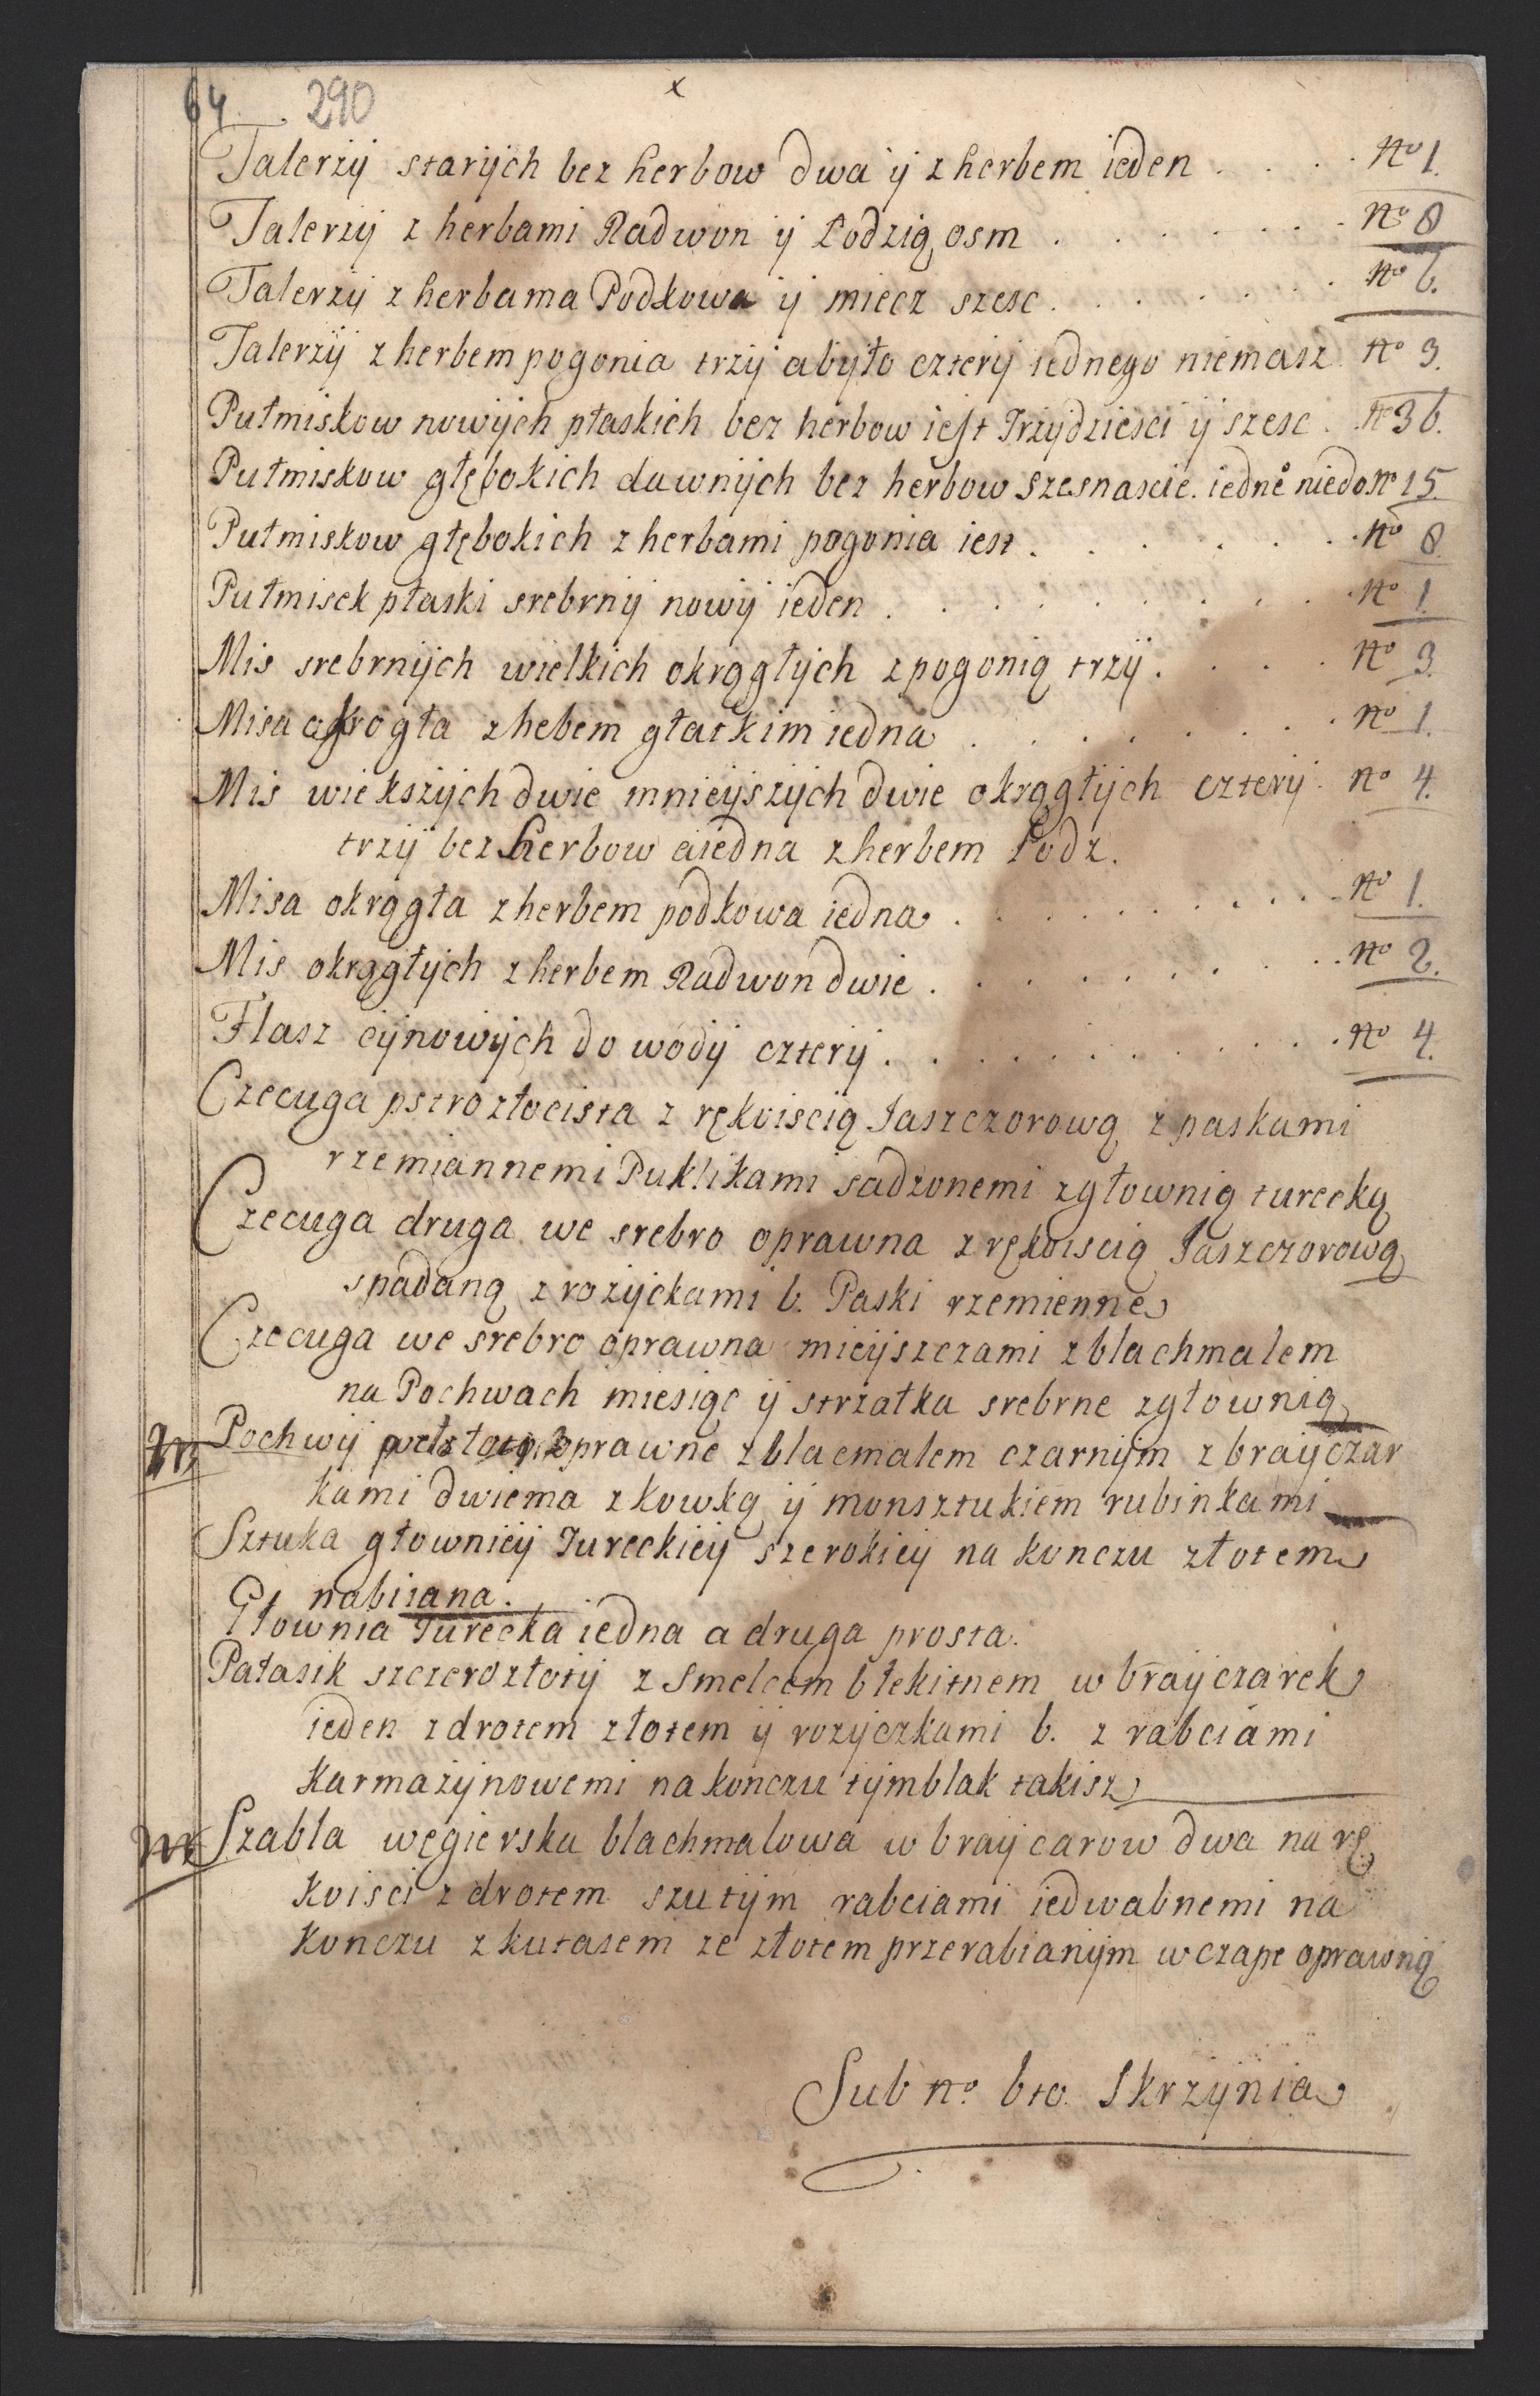 64 290 x
Talerzÿ starÿch bez herbow dwa ÿ z herbem ieden . . . . No 1.
Talerzÿ z herbami Radwon ÿ Łodzią osm . . . . . . . No 8
Talerzÿ z herbama Podkowa ÿ miecz szesc . . . . . . . No 6.
Talerzÿ z herbem pogonia trzÿ abÿło czterÿ iednego niemasz No 3.
Pułmiskow nowÿch płaskich bez herbow iest Trzÿdziesci ÿ szesc . No 36.
Pułmiskow głębokich dawnÿch bez herbow szesnascie. iedne° niedo No 15.
Pułmiskow głębokich z herbami pogonia iest . . . . . . . No 8.
Pułmisek płaski srebrnÿ nowÿ ieden . . . . . . . . . No 1.
Mis srebrnÿch wielkich okrągłÿch z pogonią trzÿ . . . . No 3.
Misa okrogła z hebem głatkim iedna . . . . . . . No 1.
Mis wiekszÿch dwie mnieÿszÿch dwie okrągłÿch czterÿ . No 4.
trzÿ bez herbow aiedna z herbem Łodz.
Misa okrągła z herbem podkowa iedna . . . . . . . . . No 1.
Mis okrągłÿch z herbem Radwon dwie . . . . . . . . No 2.
Flasz cÿnowÿch do wodÿ czterÿ . . . . . . . . . . . No 4.
Czecuga pstrozłocista z rękoiscią Jaszczorową z paskami
rzemiannemi Puklikami sadzonemi zgłownią turecką
Czecuga druga we srebro oprawna z rękoiscią Jaszczorową
spadaną z rożÿckami 6. Paski rzemienne
Czecuga we srebro oprawna mieÿszczami z blachmalem
na Pochwach miesiąc ÿ strzałka srebrne zgłownią
Pochwÿ oprawne z blacmalem czarnÿm z braÿczar
kami dwiema z kowką ÿ monsztukiem rubinkami
Sztuka głownieÿ Tureckieÿ szerokieÿ na konczu złotem
nabiiana.
Głownia Turecka iedna a druga prosta.
Pałasik szczerozłotÿ z Smelcem błekitnem w braÿczarek
ieden z drotem złotem ÿ rozÿczkami 6. z rabciami
karmazÿnowemi na konczu tÿmblak takisz
Szabla węgierska blachmalowa w braÿcarow dwa na rę
koisci z drotem szutÿm rabciami iedwabnemi na
konczu z kutasem ze złotem przerabianÿm w czape oprawną
Sub no. 6to. Skrzÿnia